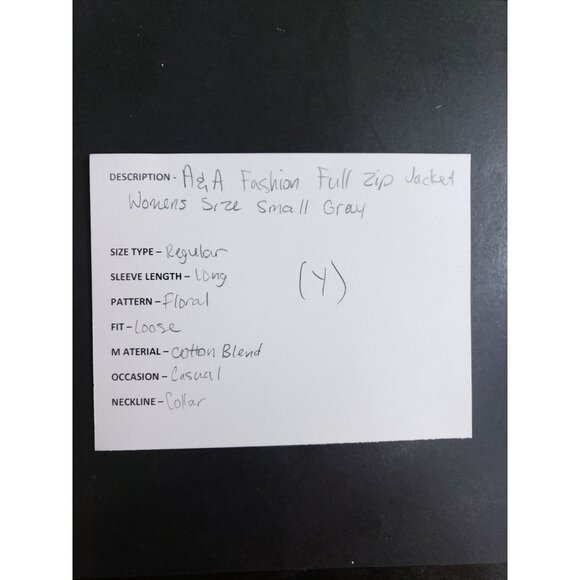 DESCRIPTION - A&A Fashion Full Zip Jacket
Womens Size Small Gray
SIZE TYPE – Regular
SLEEVE LENGTH – Long
(Y)
PATTERN – Floral
FIT – Loose
MATERIAL – Cotton Blend
OCCASION – Casual
NECKLINE – Collar